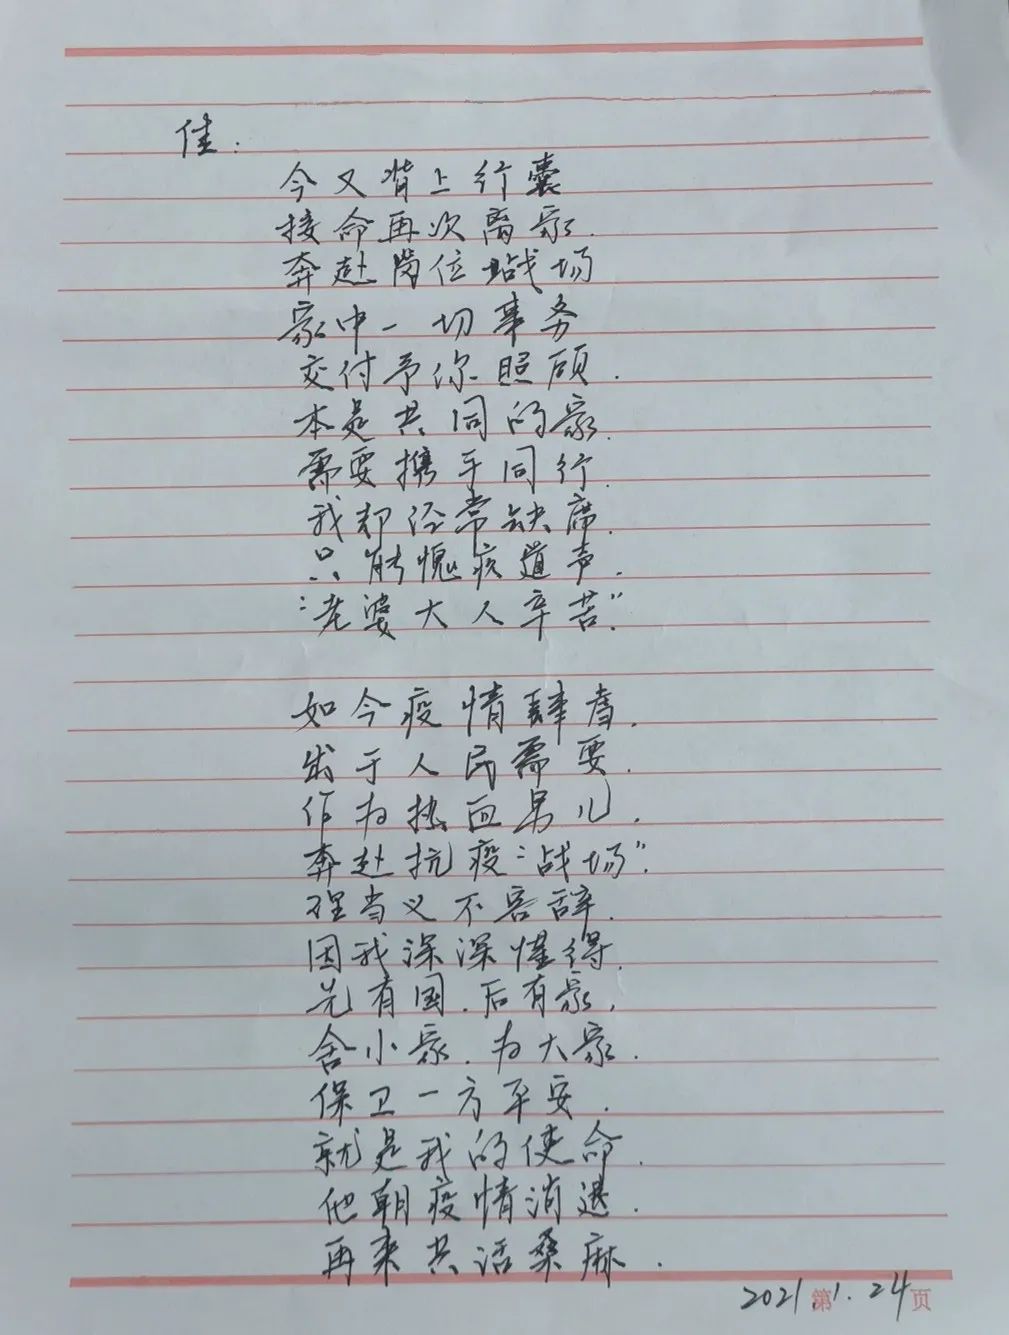 佳：
今又背上行囊
接命再次离家.
奔赴岗位战场
家中一切事务
交付予你照顾.
本是共同的家.
需要携手同行.
我却经常缺席.
只能愧疚道声.
“老婆大人辛苦”.
如今疫情肆虐.
出于人民需要.
作为热血男儿.
奔赴抗疫“战场”.
理当义不容辞.
因我深深懂得.
先有国.后有家.
舍小家.为大家.
保卫一方平安.
就是我的使命.
他朝疫情消退.
再来共话桑麻.
2021.1.24
第 页